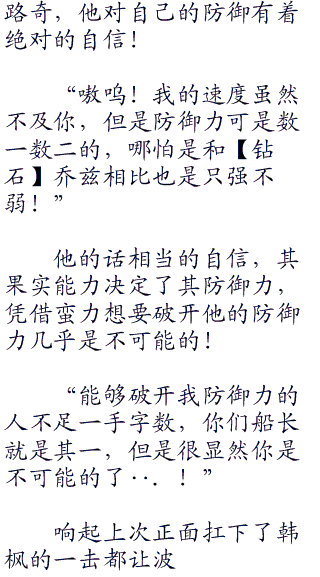 路奇，他对自己的防御有着
绝对的自信！
“嗷呜！我的速度虽然
不及你，但是防御力可是数
一数二的，哪怕是和【钻
石】乔兹相比也是只强不
弱！”
他的话相当的自信，其
果实能力决定了其防御力，
凭借蛮力想要破开他的防御
力几乎是不可能的！
“能够破开我防御力的
人不足一手字数，你们船长
就是其一，但是很显然你是
不可能的了··．！”
响起上次正面扛下了韩
枫的一击都让波